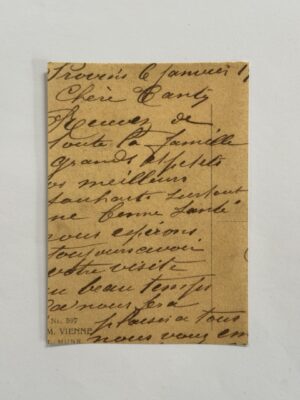 Provins 6 janvier 1
Chère Tante
Recevez de
toute la famille
grands et petits
os meilleurs
souhaits surtout
ne bonne santé
vous espérons
toujours avoir
votre visite
au beau temps
nous fra
plaisir a tous
nous vous em
Nr. 307
M. VIENNE
MUNK